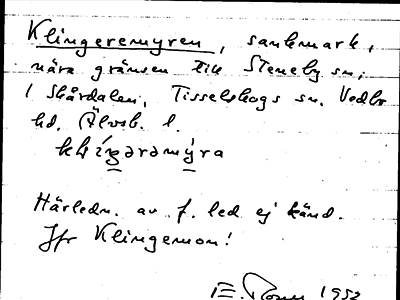 Klingeremyren, sankmark,
nära gränsen till Steneby sn,
i Skårdalen, Tisselskogs sn. Vedbo
hd. Älvsb. l.
klíŋərəmỳra
Härledn. av f. led ej känd.
Jfr Klingemon!
1952